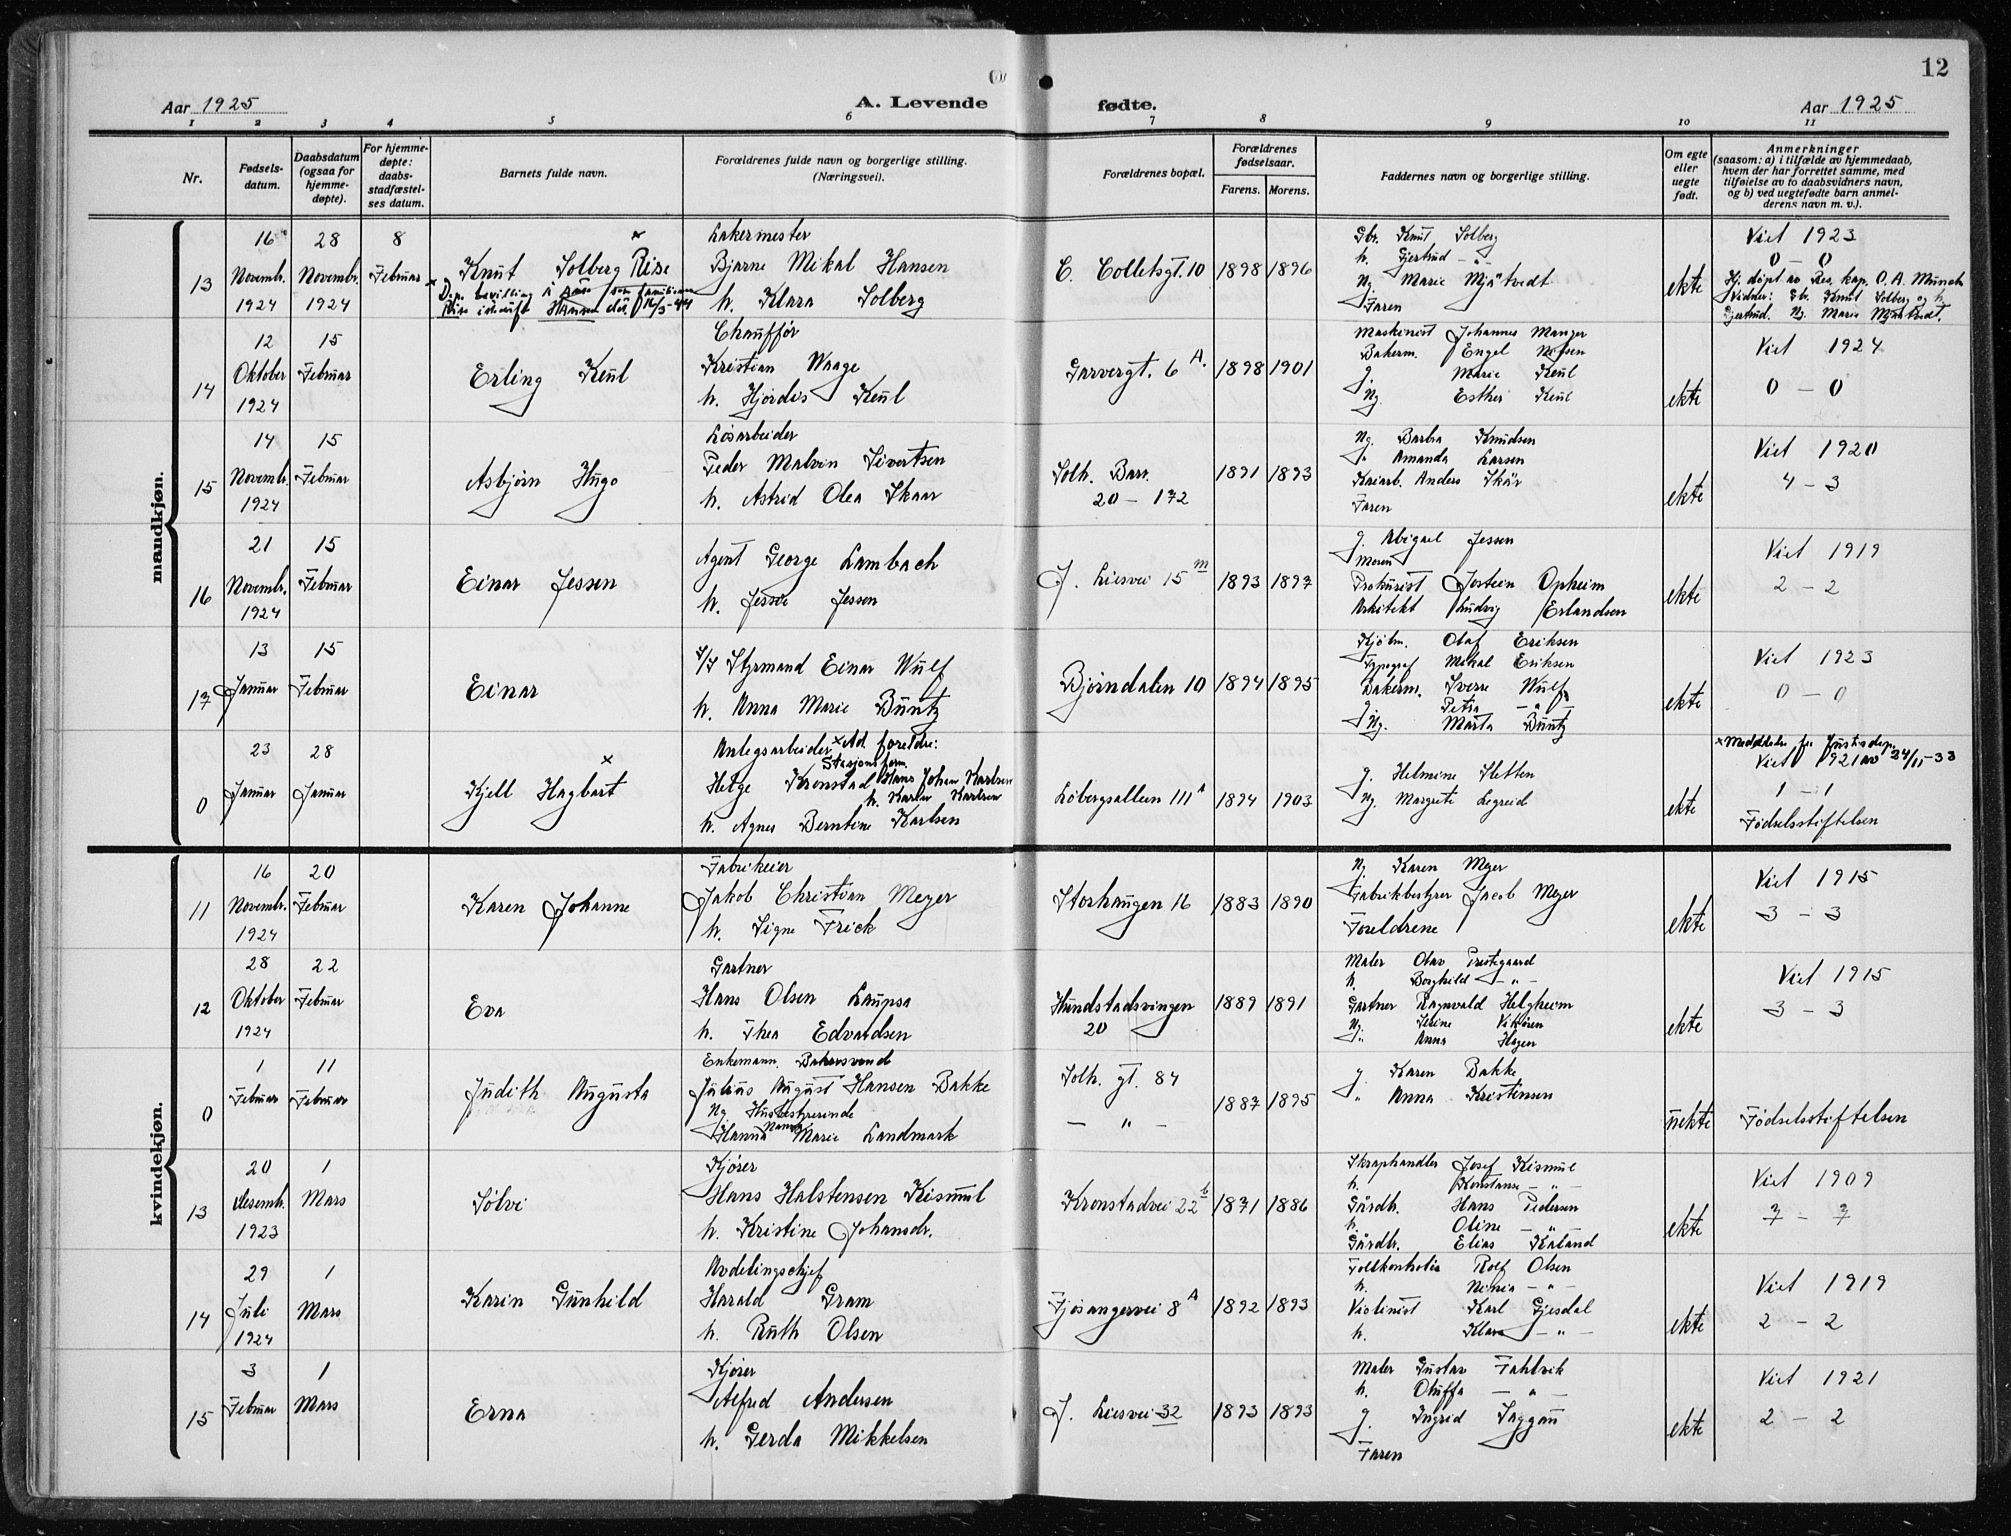 12
Aar 1925
A. Levende
fødte.
Aar 1925
1 2 3 4 5 6 7 8 9 10 11
Nr.
Fødsels-
datum.
Daabsdatum
(ogsaa for
hjemme-
døpte).
For hjemme-
døpte:
daabs-
stadfæstel-
ses datum.
Barnets fulde navn.
Forældrenes fulde navn og borgerlige stilling.
(Næringsvei).
Forældrenes bopæl.
Forældrenes
fødselsaar.
Farens. Morens.
Faddernes navn og borgerlige stilling.
Om egte
eller
uegte
født.
Anmerkninger
(saasom: a) i tilfælde av hjemmedaab,
hvem der har forrettet samme, med
tilføielse av to daabsvidners navn,
og b) ved uegtefødte barn anmel-
derens navn m. v.).
mandkjøn.
13
16
Novembr.
1924
28
Novembr.
1924
8
Februar
Knut Solberg Rise
Hansen
16/5-44
Lakermester
Bjarne Mikal Hansen
h. Klara Solberg
C. Colletsgt. 10
1898 1896
Gbr. Knut Solberg
h. Gjertrud - " -
Ng. Marie Mjåtvedt
Faren
ekte
Viet 1923
0 - 0
Hj. døpt av Res. kap. O. A. Munch
Vidner: Gbr. Knut Solberg og h.
Gjertrud. Ng. Marie Mjåtvedt.
14
12
Oktober
1924
15
Februar
Erling Keul
Chauffør
Kristian Waage
h. Hjørdis Keul
Garvergt. 6 A.
1898 1901
Maskinist Johannes Manger
Bakerm. Engel Nilsen
g. Marie Keul
Ng. Esther Keul
ekte
Viet 1924
0 - 0
15
14
Novembr.
1924
15
Februar
Asbjørn Hugo
Løsarbeider
Peder Malvin Sivertsen
h. Astrid Olea Skaar
Solh. Barr.
20 - 172
1891 1893
Ng. Barbra Knudsen
" Amanda Larsen
Kaiarb. Anders Skår
Faren
ekte
Viet 1920
4 - 3
16
21
Novembr.
1924
15
Februar
Einar Jessen
Agent George Lambach
h. Jessie Jessen
J. Liesvei 15 m
1893 1897
g. Abigael Jessen
Moren
Prokurist Jostein Opheim
Arkitekt Ludvig Erlandsen
ekte
Viet 1919
2 - 2
17
13
Januar
15
Februar
Einar
Styrmand Einar Wulf
h. Anna Marie Buntz
Bjørndalen 10
1894 1895
Kjøbm. Olaf Eriksen
Typograf Mikal Eriksen
Bakerm. Sverre Wulf
g. Petra - " -
Ng. Marta Buntz
ekte
Viet 1923
0 - 0
0
23
Januar
28
Januar
Kjell Hagbart x
Anlegsarbeider x Ad. foreldre:
Stasjonsform.
Helge Kronstad Hans Johan Karlsen
h. Karen Karlsen
h. Agnes Berntine Karlsen
Løbergsalleen 111 A
1894 1903
g. Helmine Sletten
Ng. Margrete Legreid
ekte
x Meddelelse fra Justisdep.
Viet 1921 av 24/11-33
1 - 1
Fødselsstiftelsen
kvindekjøn.
11
16
Novembr.
1924
20
Februar
Karen Johanne
Fabrikeier
Jakob Christian Meyer
h. Signe Frick
Storhaugen 16
1883 1890
Ng. Karen Meyer
Fabrikbestyrer Jacob Meyer
Foreldrene
ekte
Viet 1915
3 - 3
12
28
Oktober
1924
22
Februar
Eva
Gartner
Hans Olsen Laupsa
h. Thea Edvardsen
Hundstadsvingen
20
1889 1891
Maler Olav Prestegaard
h. Borghild - " -
Gartner Ragnvald Helgheim
Ng. Serine Vikøren
" Anna Hagen
ekte
Viet 1915
3 - 3
0
1
Februar
11
Februar
Judith Augusta
Enkemann. Bakersvend
Julius August Hansen Bakke
Ng Husbestyrerinde
Hanna Nanna Marie Landmark
Solh. gt. 84
- " -
1887 1895
g. Karen Bakke
" Anna Kristensen
uekte
Fødselsstiftelsen
13
20
desembr.
1923
1
Mars
Sølvi
Kjører
Hans Halstensen Kismul
h. Kristine Johansdr.
Kronstadvei 22 b
1871 1886
Skraphandler Josef Kismul
h. Konstanse - " -
Gårdbr. Hans Pedersen
h. Oline - " -
Gårdbr. Elias Kaland
ekte
Viet 1909
7 - 7
14
29
Juli
1924
1
Mars
Karin Gunhild
Avdelingschef
Harald Gram
h. Ruth Olsen
Fjøsangervei 8 A
1892 1893
Tollkontrolør Rolf Olsen
h. Mimia - " -
Violinist Karl Gjesdal
h. Klara - " -
ekte
Viet 1919
2 - 2
15
3
Februar
1
Mars
Erna
Kjører
Alfred Andersen
h. Gerda Mikkelsen
J. Liesvei 32
1893 1893
Maler Gustav Fahlvik
h. Oluffa - " -
g. Ingrid Taggau
Faren
ekte
Viet 1921
2 - 2